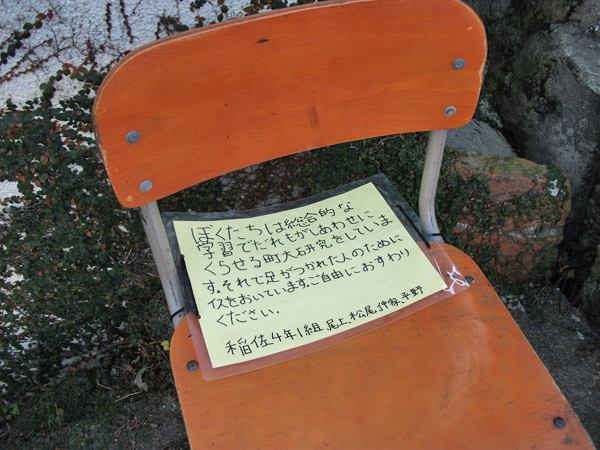 ぼくたちは総合的な
学習でだれもがしあわせに
くらせる町大石研究をしていま
す。それで足がつかれた人のために
イスをおいています。ご自由におすわり
ください。
稲佐4年1組 尾上、松尾、仲家、平野